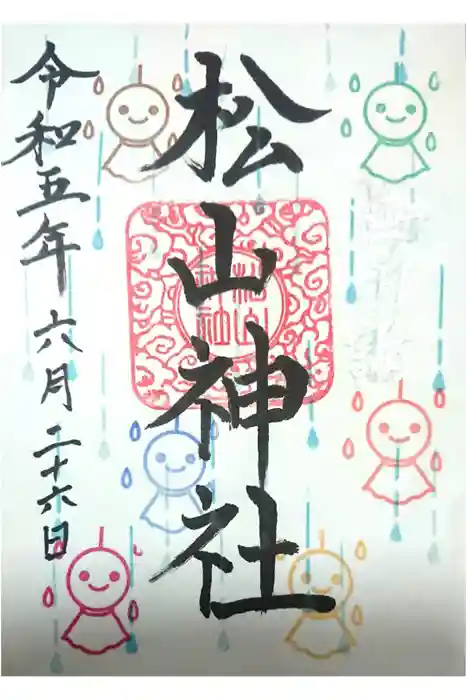 松山神社
令和五年 六月二十六日
松山
神社